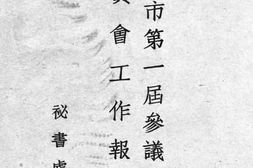 市第一屆參議
會工作報
祕書處